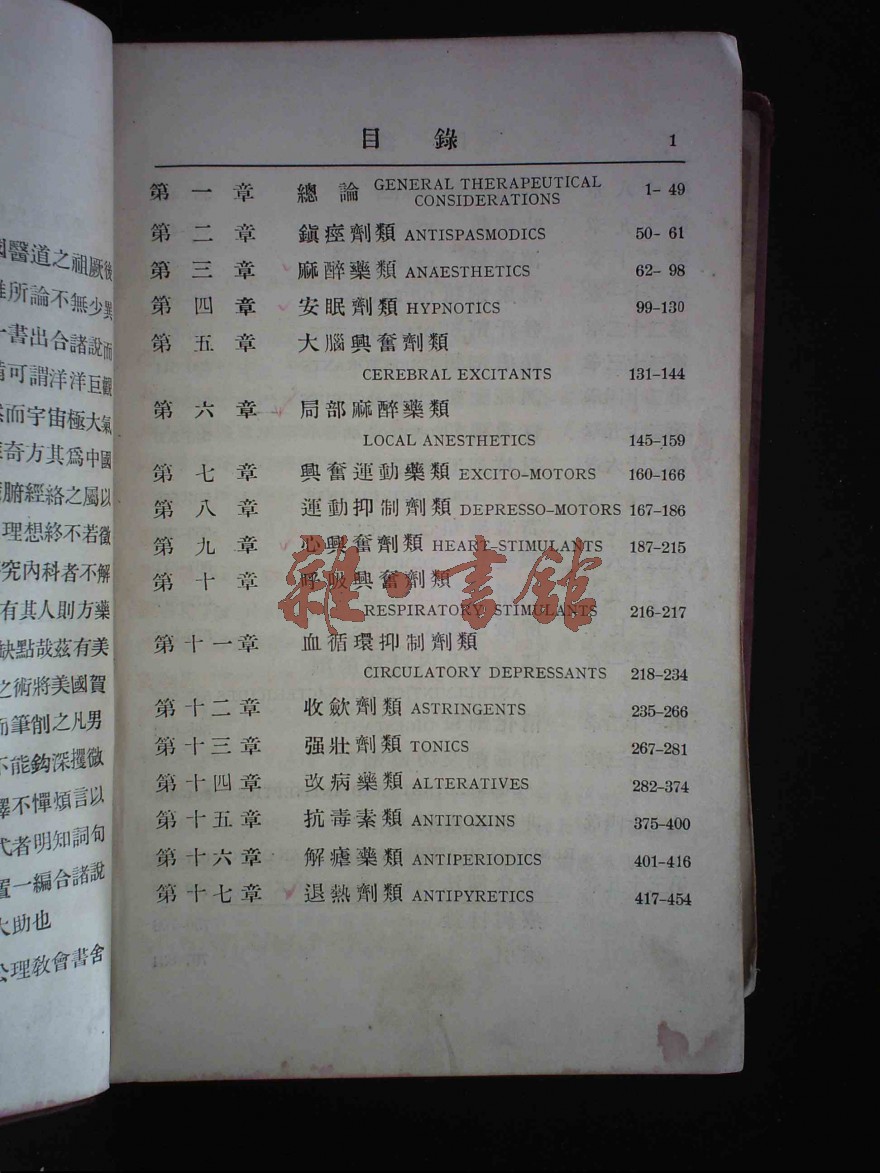 國醫道之祖厥後
所論不無少異
書出合諸說而
可謂洋洋巨觀
而宇宙極大氣
奇方其爲中國
腑經絡之屬以
理想終不若徵
究內科者不解
有其人則方藥
缺點哉茲有美
之術將美國賀
而筆削之凡男
不能鈎深攫微
譯不憚煩言以
代者明知詞句
置一編合諸說
大助也
公理敎會書舍
目錄 1
第一章 總論 GENERAL THERAPEUTICAL CONSIDERATIONS 1-49
第二章 鎭痙劑類 ANTISPASMODICS 50-61
第三章 麻醉藥類 ANAESTHETICS 62-98
第四章 安眠劑類 HYPNOTICS 99-130
第五章 大腦興奮劑類
CEREBRAL EXCITANTS 131-144
第六章 局部麻醉藥類
LOCAL ANESTHETICS 145-159
第七章 興奮運動藥類 EXCITO-MOTORS 160-166
第八章 運動抑制劑類 DEPRESSO-MOTORS 167-186
第九章 心興奮劑類 HEART-STIMULANTS 187-215
第十章 呼吸興奮劑類
RESPIRATORY STIMULANTS 216-217
雜·書館
第十一章 血循環抑制劑類
CIRCULATORY DEPRESSANTS 218-234
第十二章 收歛劑類 ASTRINGENTS 235-266
第十三章 强壯劑類 TONICS 267-281
第十四章 改病藥類 ALTERATIVES 282-374
第十五章 抗毒素類 ANTITOXINS 375-400
第十六章 解瘧藥類 ANTIPERIODICS 401-416
第十七章 退熱劑類 ANTIPYRETICS 417-454